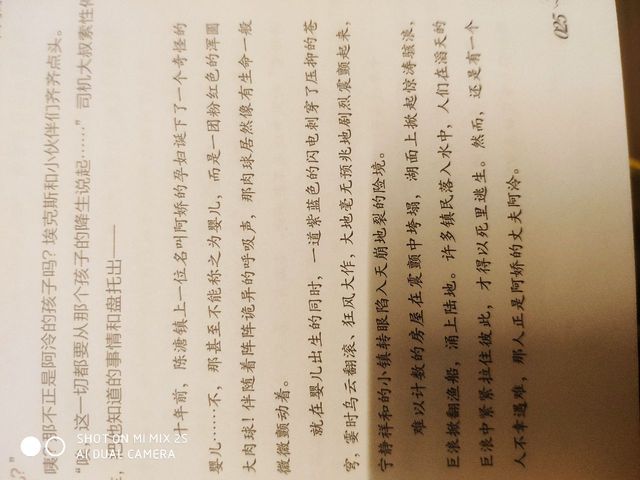 咦，那不正是阿冷的孩子吗？埃克斯和小伙伴们齐齐点头。
这一切都要从那个孩子的降生说起……”司机大叔索性
他知道的事情和盘托出——
十年前，陈塘镇上一位名叫阿娇的孕妇诞下了一个奇怪的
婴儿……不，那甚至不能称之为婴儿，而是一团粉红色的浑圆
大肉球！伴随着阵阵诡异的呼吸声，那肉球居然像有生命一般
微微颤动着。
就在婴儿出生的同时，一道紫蓝色的闪电刺穿了压抑的苍
穹，霎时乌云翻滚、狂风大作，大地毫无预兆地剧烈震颤起来，
宁静祥和的小镇转眼陷入天崩地裂的险境。
难以计数的房屋在震颤中垮塌，湖面上掀起惊涛骇浪，
巨浪掀翻渔船，涌上陆地。许多镇民落入水中，人们在滔天的
巨浪中紧紧拉住彼此，才得以死里逃生。然而，还是有一个
人不幸遇难，那人正是阿娇的丈夫阿冷。
025
SHOT ON MI MIX 2S
AI DUAL CAMERA